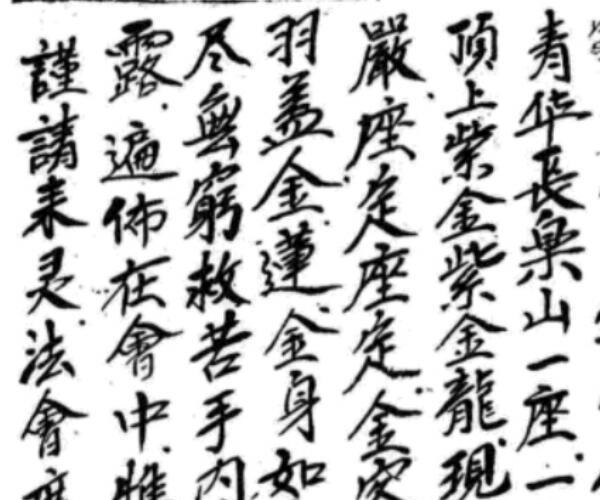 青华長樂山一座一
頂上紫金紫金龍現
嚴座定座定金
羽盖金蓮金身如
尽無窮救苦手内
露遍佈在會中
謹請来灵法會